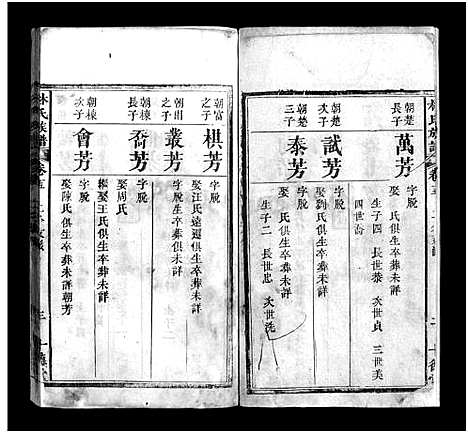 林氏族譜
卷五
朝楚
長子
萬芳
字脫
生卒葬俱未詳
生子四 長世恭 次世貞 三世美
四世
朝楚
次子
試芳
字脫
娶劉氏俱生卒葬未詳
朝楚
三子
泰芳
字脫
娶 氏俱生卒葬未詳
生子二 長世忠 次世洗
朝富
之子
棋芳
字脫
娶汪氏 俱生卒葬未詳
朝
之子
叢芳
字脫
生卒葬俱未詳
朝棟
長子
喬芳
字脫
娶周氏
繼娶王氏俱生卒葬未詳
朝棟
次子
會芳
字脫
娶陳氏俱生卒葬未詳朝芳
林氏族譜
卷五
三